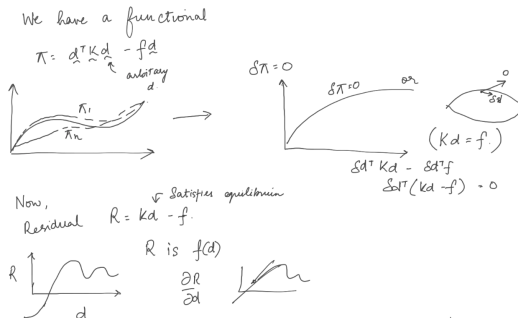 We have a functional
π = dᵀKd - fd
arbitary
d
π₁
πn
δπ=0
δπ=0
or
0
δd
(Kd = f.)
δdᵀKd - δdᵀf
δdᵀ(Kd-f) = 0
Satisfies equilibrium
Now,
Residual R = Kd - f.
R is f(d)
R
d
∂R
∂d